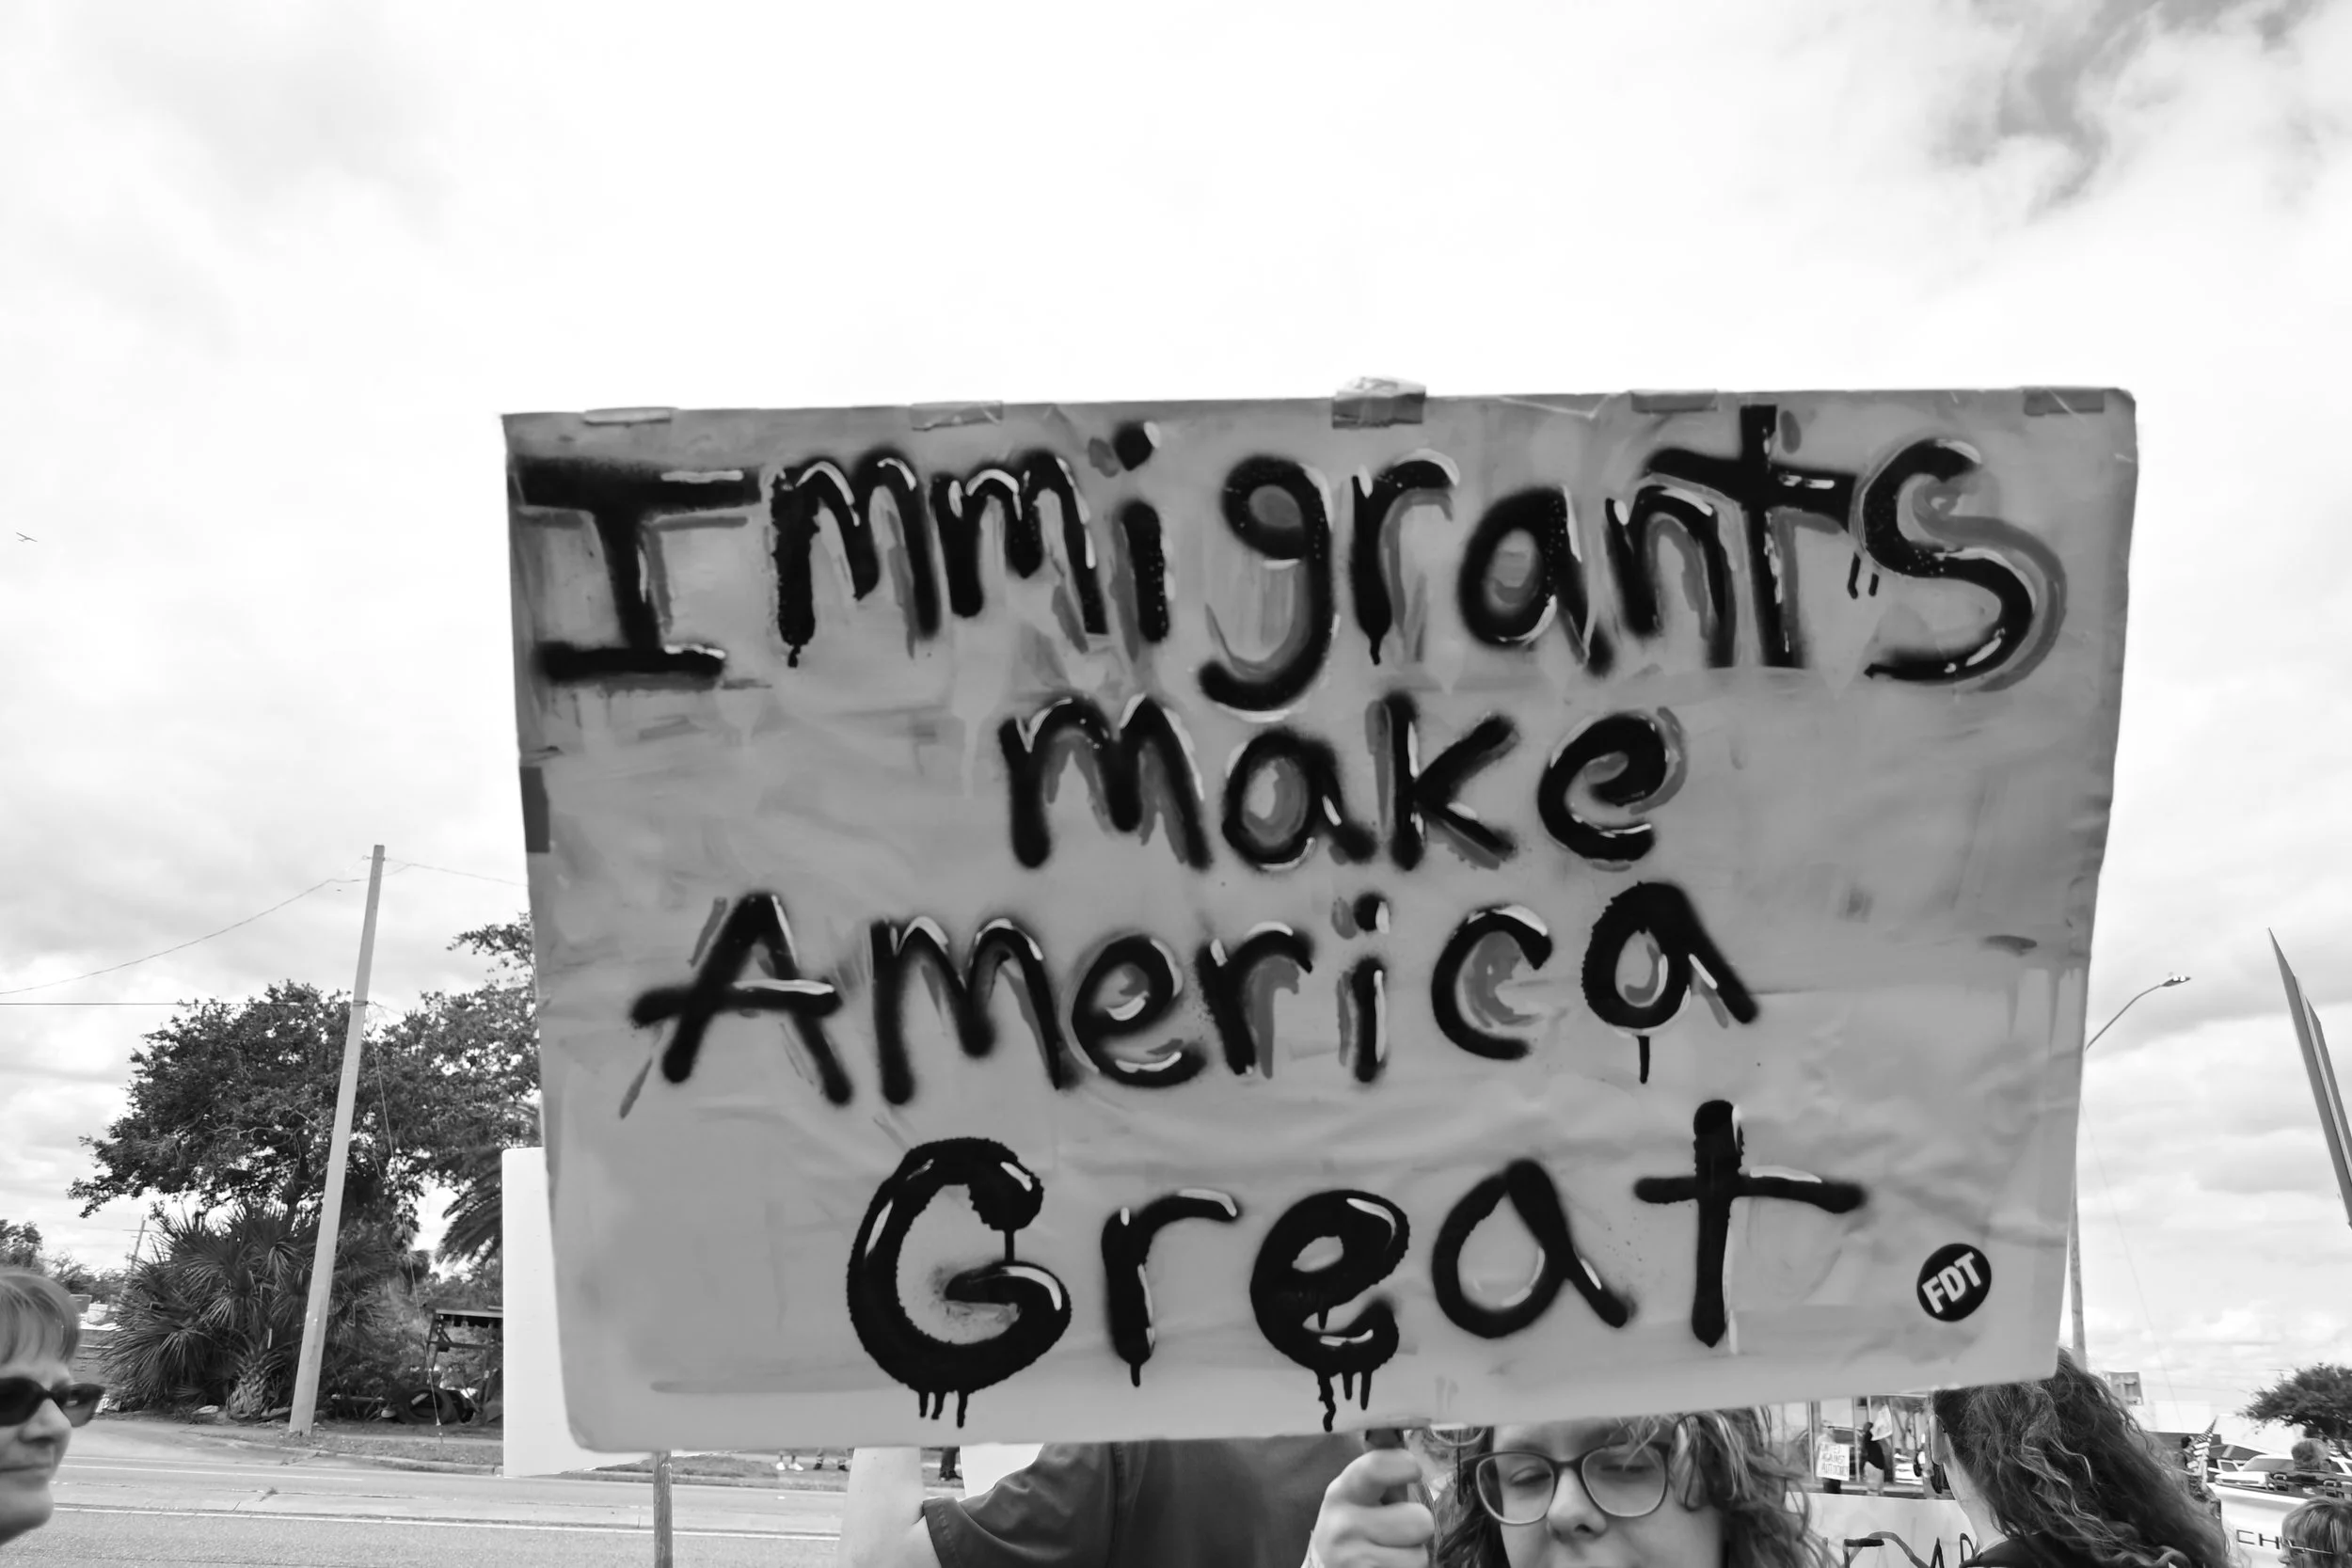 Immigrants
make
America
Great.
FDT
CH